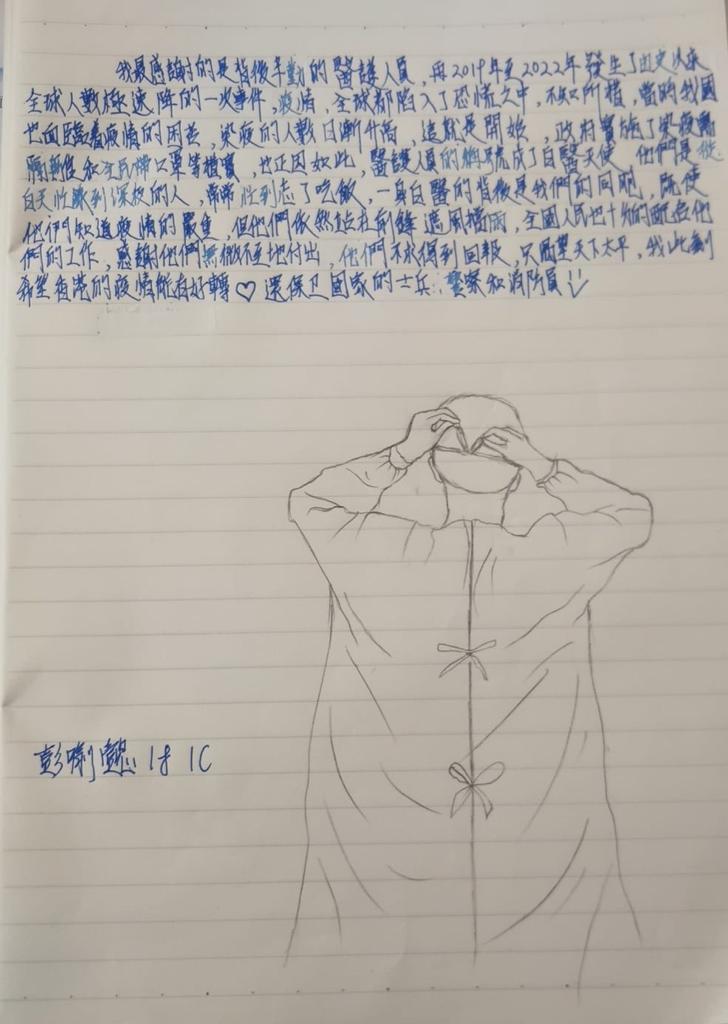 我最感謝的是背後辛勤的醫護人員，再2019年至2022年發生了由史以來
全球人數極速降的一次事件，疫情，全球都陷入了恐慌之中，不知所措，當的我國
也面臨着疫情的困苦，染疫的人數日漸升高，這就是開始，政府實施了染疫需
隔離後和全民帶口罩等措實，也正因如此，醫護人員的綽號成了白醫天使，他們是從
白天忙錄到深夜的人，常常忙到忘了吃飯，一身白醫的背後是我們的同胞，既使
他們知道疫情的嚴重，但他們依然站在前鋒遮風擋雨，全國人民也十分的配合他
們的工作，感謝他們無微不至地付出，他們不求得到回報，只願望天下太平，我此刻
希望香港的疫情能有好轉♡ 還保卫國家的士兵、警察和消防員
彭 18 1C